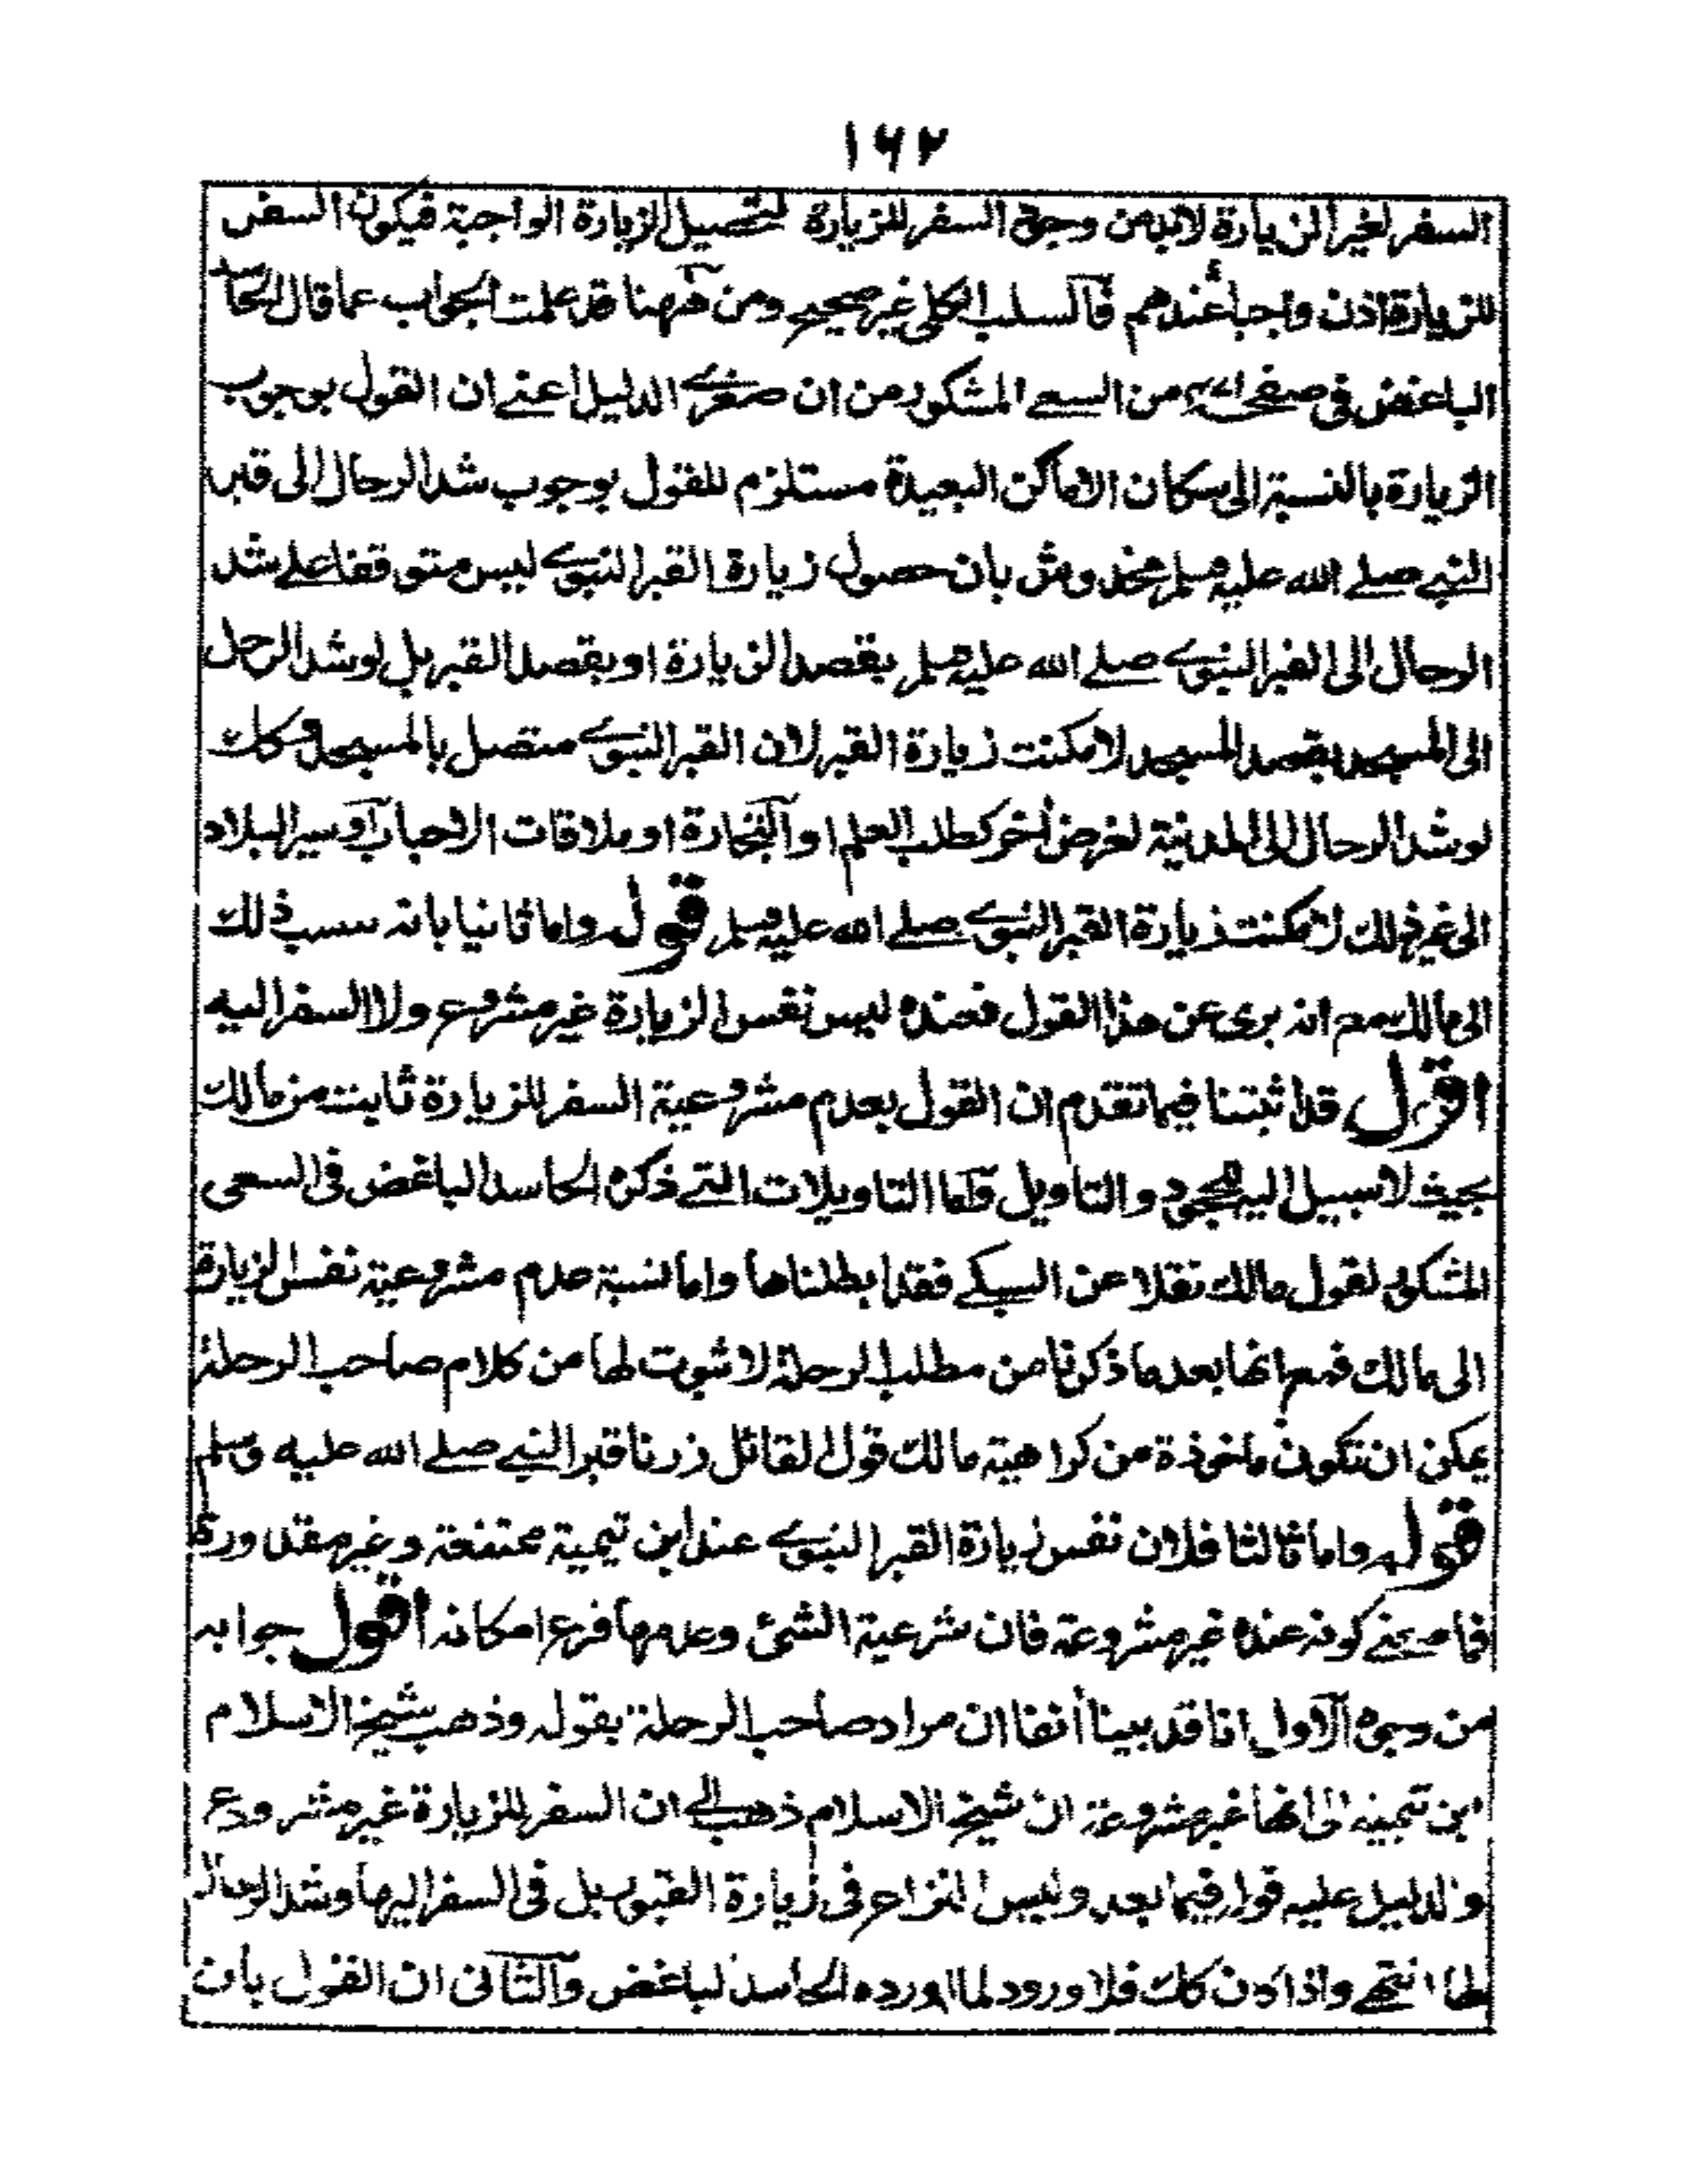 ١٦٢
السفر لغير الزيارة لابد من وجوب السفر للزيارة لتحصيل الزيارة الواجبة فيكون السفر
للزيارة اذن واجبا عندهم فالسلب الكلى غير صحيح ومن ههنا قد علمت الجواب عما قال الحاسد
الباغض فى صفحة من السعى المشكور من ان صغرى الدليل اعنى ان القول بوجوب
الزيارة بالنسبة الى سكان الاماكن البعيدة مستلزم للقول بوجوب شد الرحال الى قبر
النبى صلى الله عليه وسلم مخدوش بان حصول زيارة القبر النبوى ليس متوقفا على شد
الرحال الى القبر النبوى صلى الله عليه وسلم بقصد الزيارة او بقصد القبر بل لو شد الرحل
الى المسجد بقصد المسجد لامكنت زيارة القبر لان القبر النبوى متصل بالمسجد وكك
لو شد الرحال الى المدينة لغرض أخر كطلب العلم او التجارة او ملاقات الاحباب او سير البلاد
الى غير ذلك لامكنت زيارة القبر النبوى صلى الله عليه وسلم قوله واما ثانيا بانه نسب ذلك
الى مالك مع انه برى عن هذا القول فعنده ليس نفس الزيارة غير مشروع ولا السفر اليه
اقول قد اثبتنا فيما تقدم ان القول بعدم مشروعية السفر للزيارة ثابت من مالك
بحيث لا سبيل اليه للجحود والتاويل واما التاويلات التى ذكره الحاسد الباغض فى السعى
المشكور لقول مالك نقلا عن السبكى فقد ابطلناها واما نسبة عدم مشروعية نفس الزيارة
الى مالك فمع انها بعد ما ذكرنا من مطلب الرحلة لا ثبوت لها من كلام صاحب الرحلة
يمكن ان تكون ماخوذة من كراهية مالك قول القائل زرنا قبر النبى صلى الله عليه وسلم
قوله واما ثالثا فلان نفس زيارة القبر النبوى عند ابن تيمية ممتنعة وغير مقدورة
فما معنى كونه عنده غير مشروعة فان شرعية الشئ وعدمها فرع امكانه اقول جوابه
من وجوه الاول انا قد بينا أنفا ان مراد صاحب الرحلة بقوله وذهب شيخ الاسلام
ابن تيمية الى انها غير مشروعة ان شيخ الاسلام ذهب الى ان السفر للزيارة غير مشروع
والدليل عليه قوله فيما بعد وليس النزاع فى زيارة القبور بل فى السفر اليها وشد الرحال
لها انتهى واذا كان كك فلا ورود لما اورده الحاسد الباغض والثانى ان القول بان